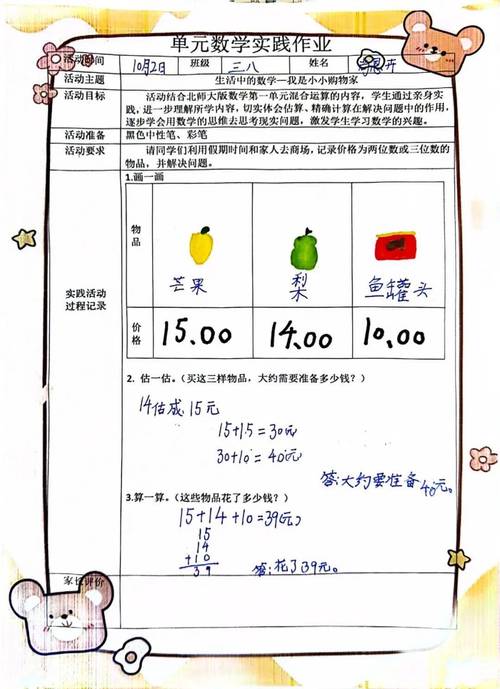 单元数学实践作业
活动时间 10月2日 班级 三八 姓名 开
活动主题 生活中的数学—我是小小购物家
活动目标 活动结合北师大版数学第一单元混合运算的内容，学生通过亲身实
践，进一步理解所学内容，切实体会估算、精确计算在解决问题中的作用，
逐步学会用数学的思维去思考现实问题，激发学生学习数学的兴趣。
活动准备 黑色中性笔、彩笔
活动要求 请同学们利用假期时间和家人去商场，记录价格为两位数或三位数的
物品，并解决问题。
实践活动
过程记录
1.画一画
物品
芒果 梨 鱼罐头
价格 15.00 14.00 10.00
2. 估一估。（买这三样物品，大约需要准备多少钱？）
14估成15元
15+15=30元
30+10=40元
答:大约要准备40元。
3.算一算。（这些物品花了多少钱？）
15+14+10=39(元)
15
14
+10
39
答:花了39元。
家长评价